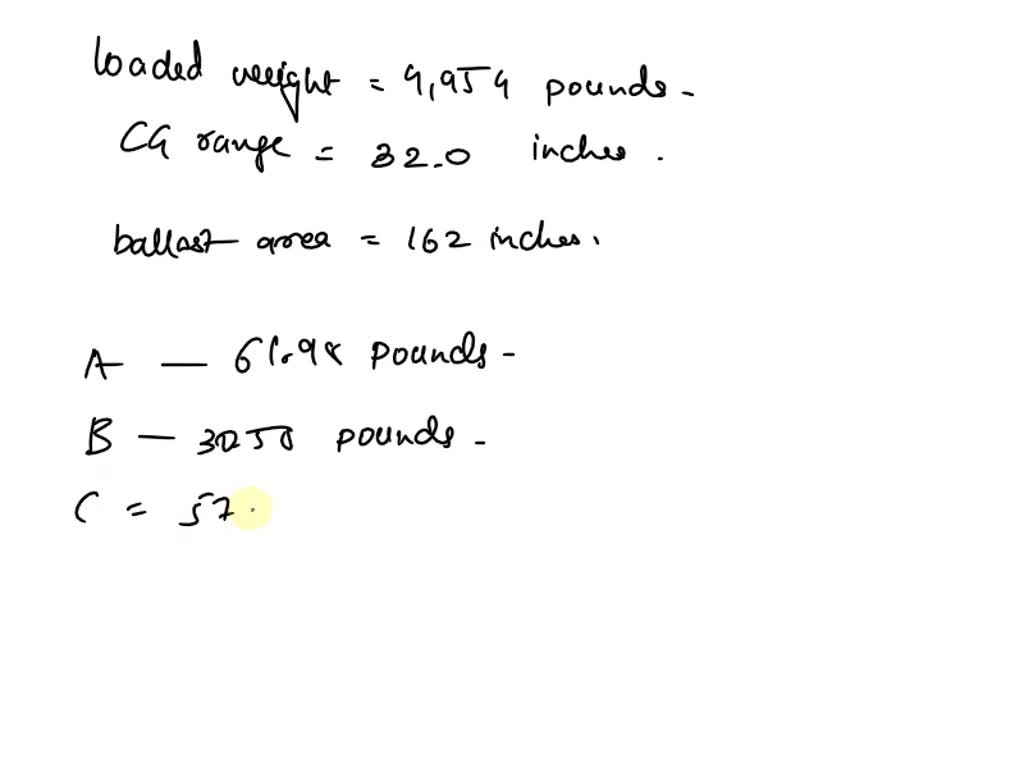 loaded weight = 4,954 pounds -
CG range = 32.0 inches .
ballast area = 162 inches.
A — 61.98 pounds -
B — 30.58 pounds -
C = 57.